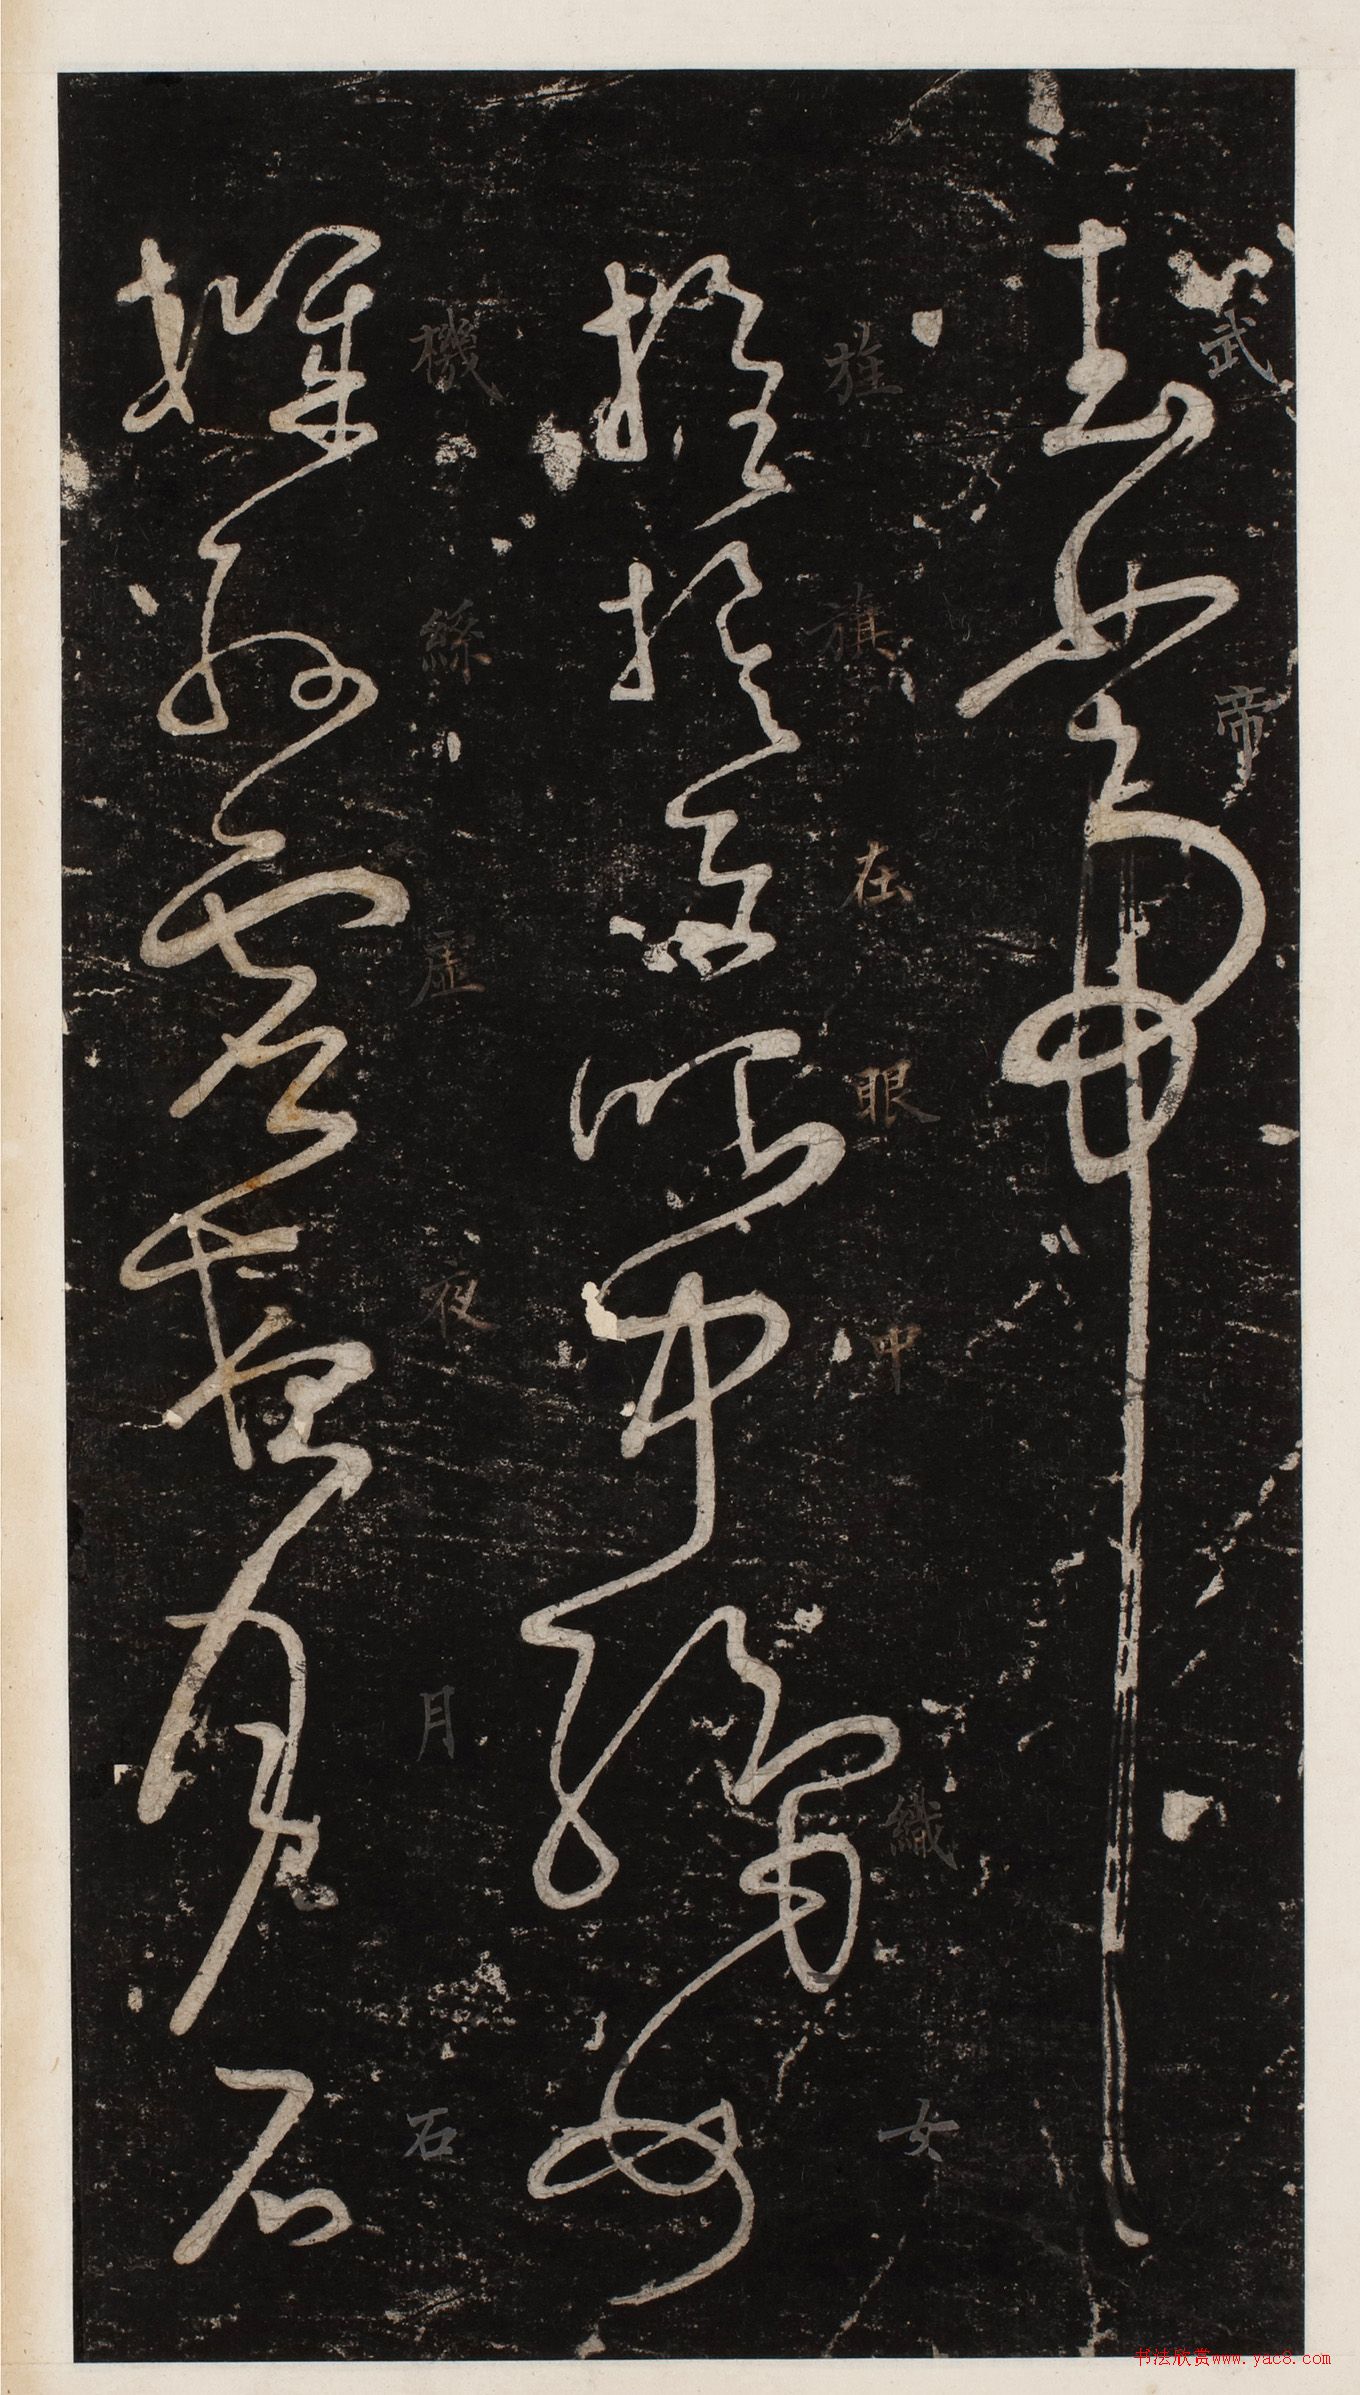 武帝
旌旗在眼中織女
機絲虛夜月石
书法欣赏www.yac8.com